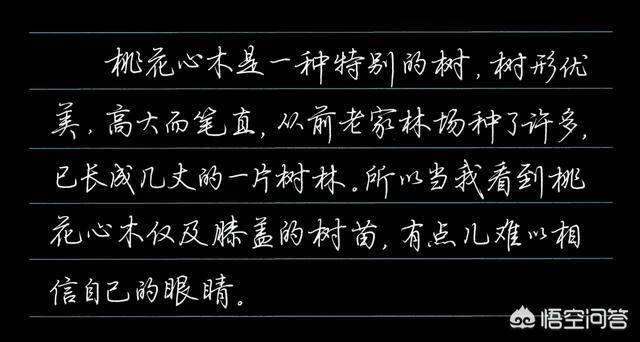 桃花心木是一种特别的树，树形优
美，高大而笔直，从前老家林场种了许多，
已长成几丈的一片树林。所以当我看到桃
花心木仅及膝盖的树苗，有点儿难以相
信自己的眼睛。
悟空问答